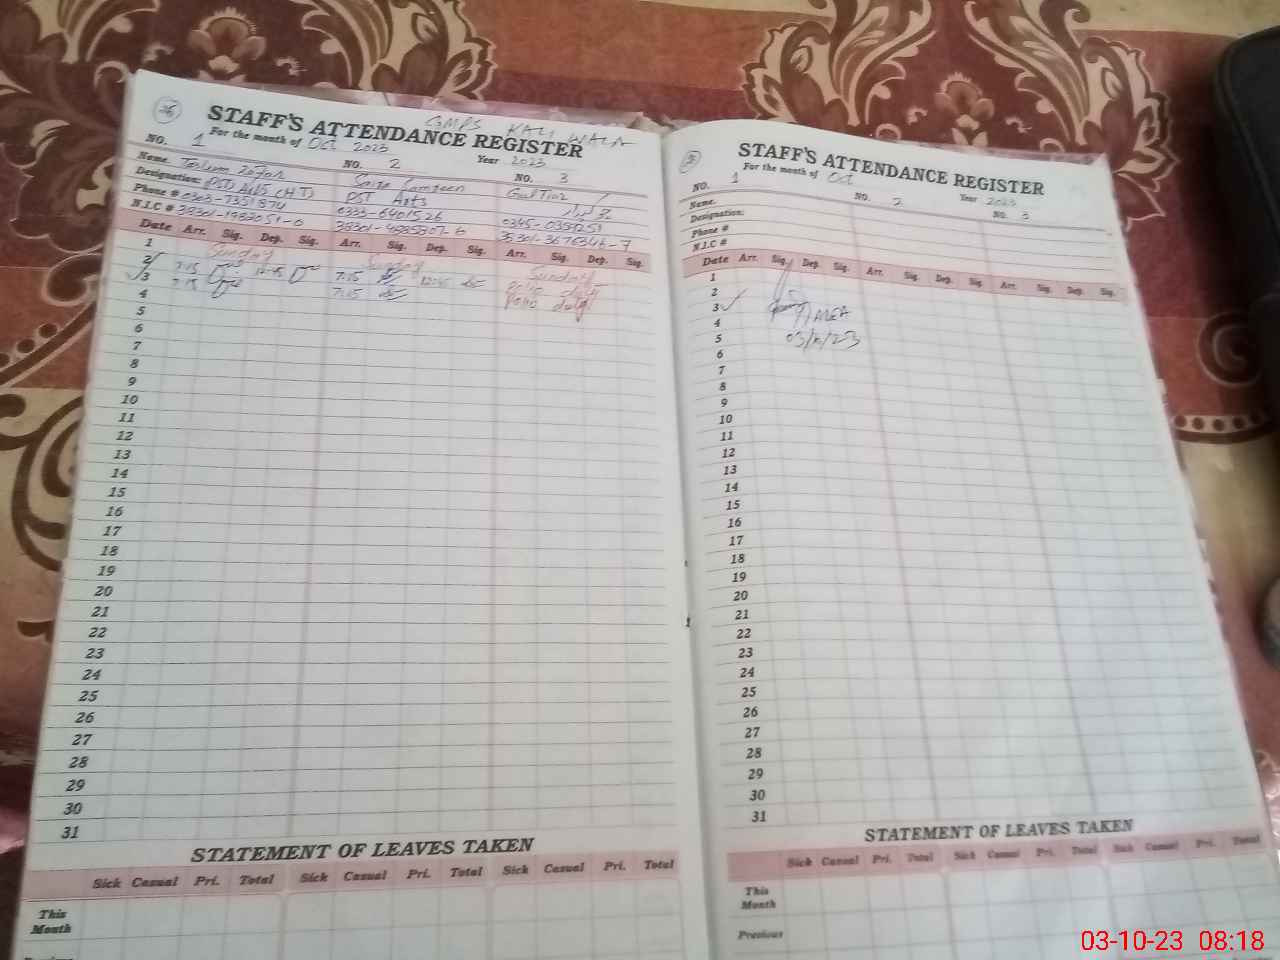 26
GMPS KALI WALA
STAFF'S ATTENDANCE REGISTER
For the month of Oct 2023 Year 2023
NO. 1 NO. 2 NO. 3
Name. Gul Tiaz
Designation: PST Arts (H.T) PST Arts چوکیدار
Phone # 0303-7351874 0333-6401526
N.I.C #
Date Arr. Sig. Dep. Sig. Arr. Sig. Dep. Sig. Arr. Sig. Dep. Sig.
1 Sunday Sunday Sunday
2 7:15 12:45 7:15 12:45 Polio duty
3 7:15 7:15 Polio duty
4
5
6
7
8
9
10
11
12
13
14
15
16
17
18
19
20
21
22
23
24
25
26
27
28
29
30
31
STATEMENT OF LEAVES TAKEN
Sick Casual Pri. Total Sick Casual Pri. Total Sick Casual Pri. Total
This Month
STAFF'S ATTENDANCE REGISTER
For the month of Oct Year 2023
NO. 1 NO. 2 NO. 3
Name.
Designation:
Phone #
N.I.C #
Date Arr. Sig. Dep. Sig. Arr. Sig. Dep. Sig. Arr. Sig. Dep. Sig.
1
2
3 AREA
4
5 03/10/23
6
7
8
9
10
11
12
13
14
15
16
17
18
19
20
21
22
23
24
25
26
27
28
29
30
31
STATEMENT OF LEAVES TAKEN
Sick Casual Pri. Total Sick Casual Pri. Total Sick Casual Pri. Total
This Month
Previous
03-10-23 08:18